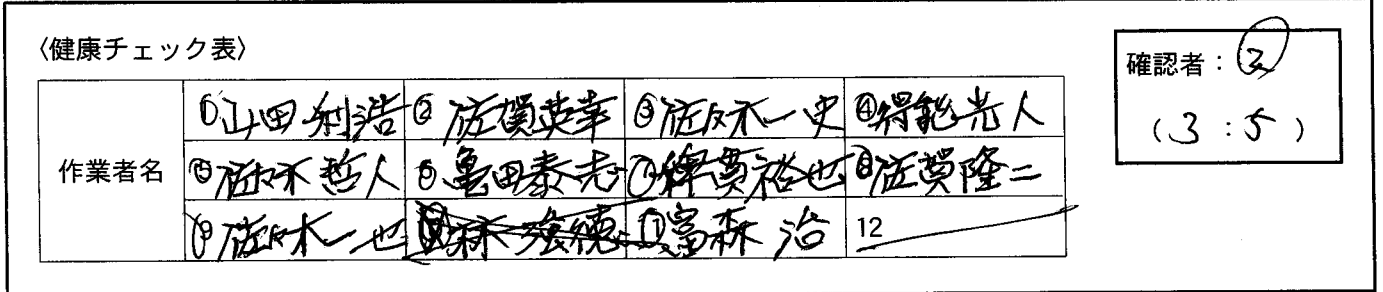 〈健康チェック表〉
確認者：②
（3：5）
作業者名
①山田利浩 ②佐賀英幸 ③佐々木一史 ④得能光人
⑤佐々木哲人 ⑥亀田泰志 ⑦綿貫裕也 ⑧佐賀隆二
⑨佐々木一也 ⑩ ⑪富森治 12